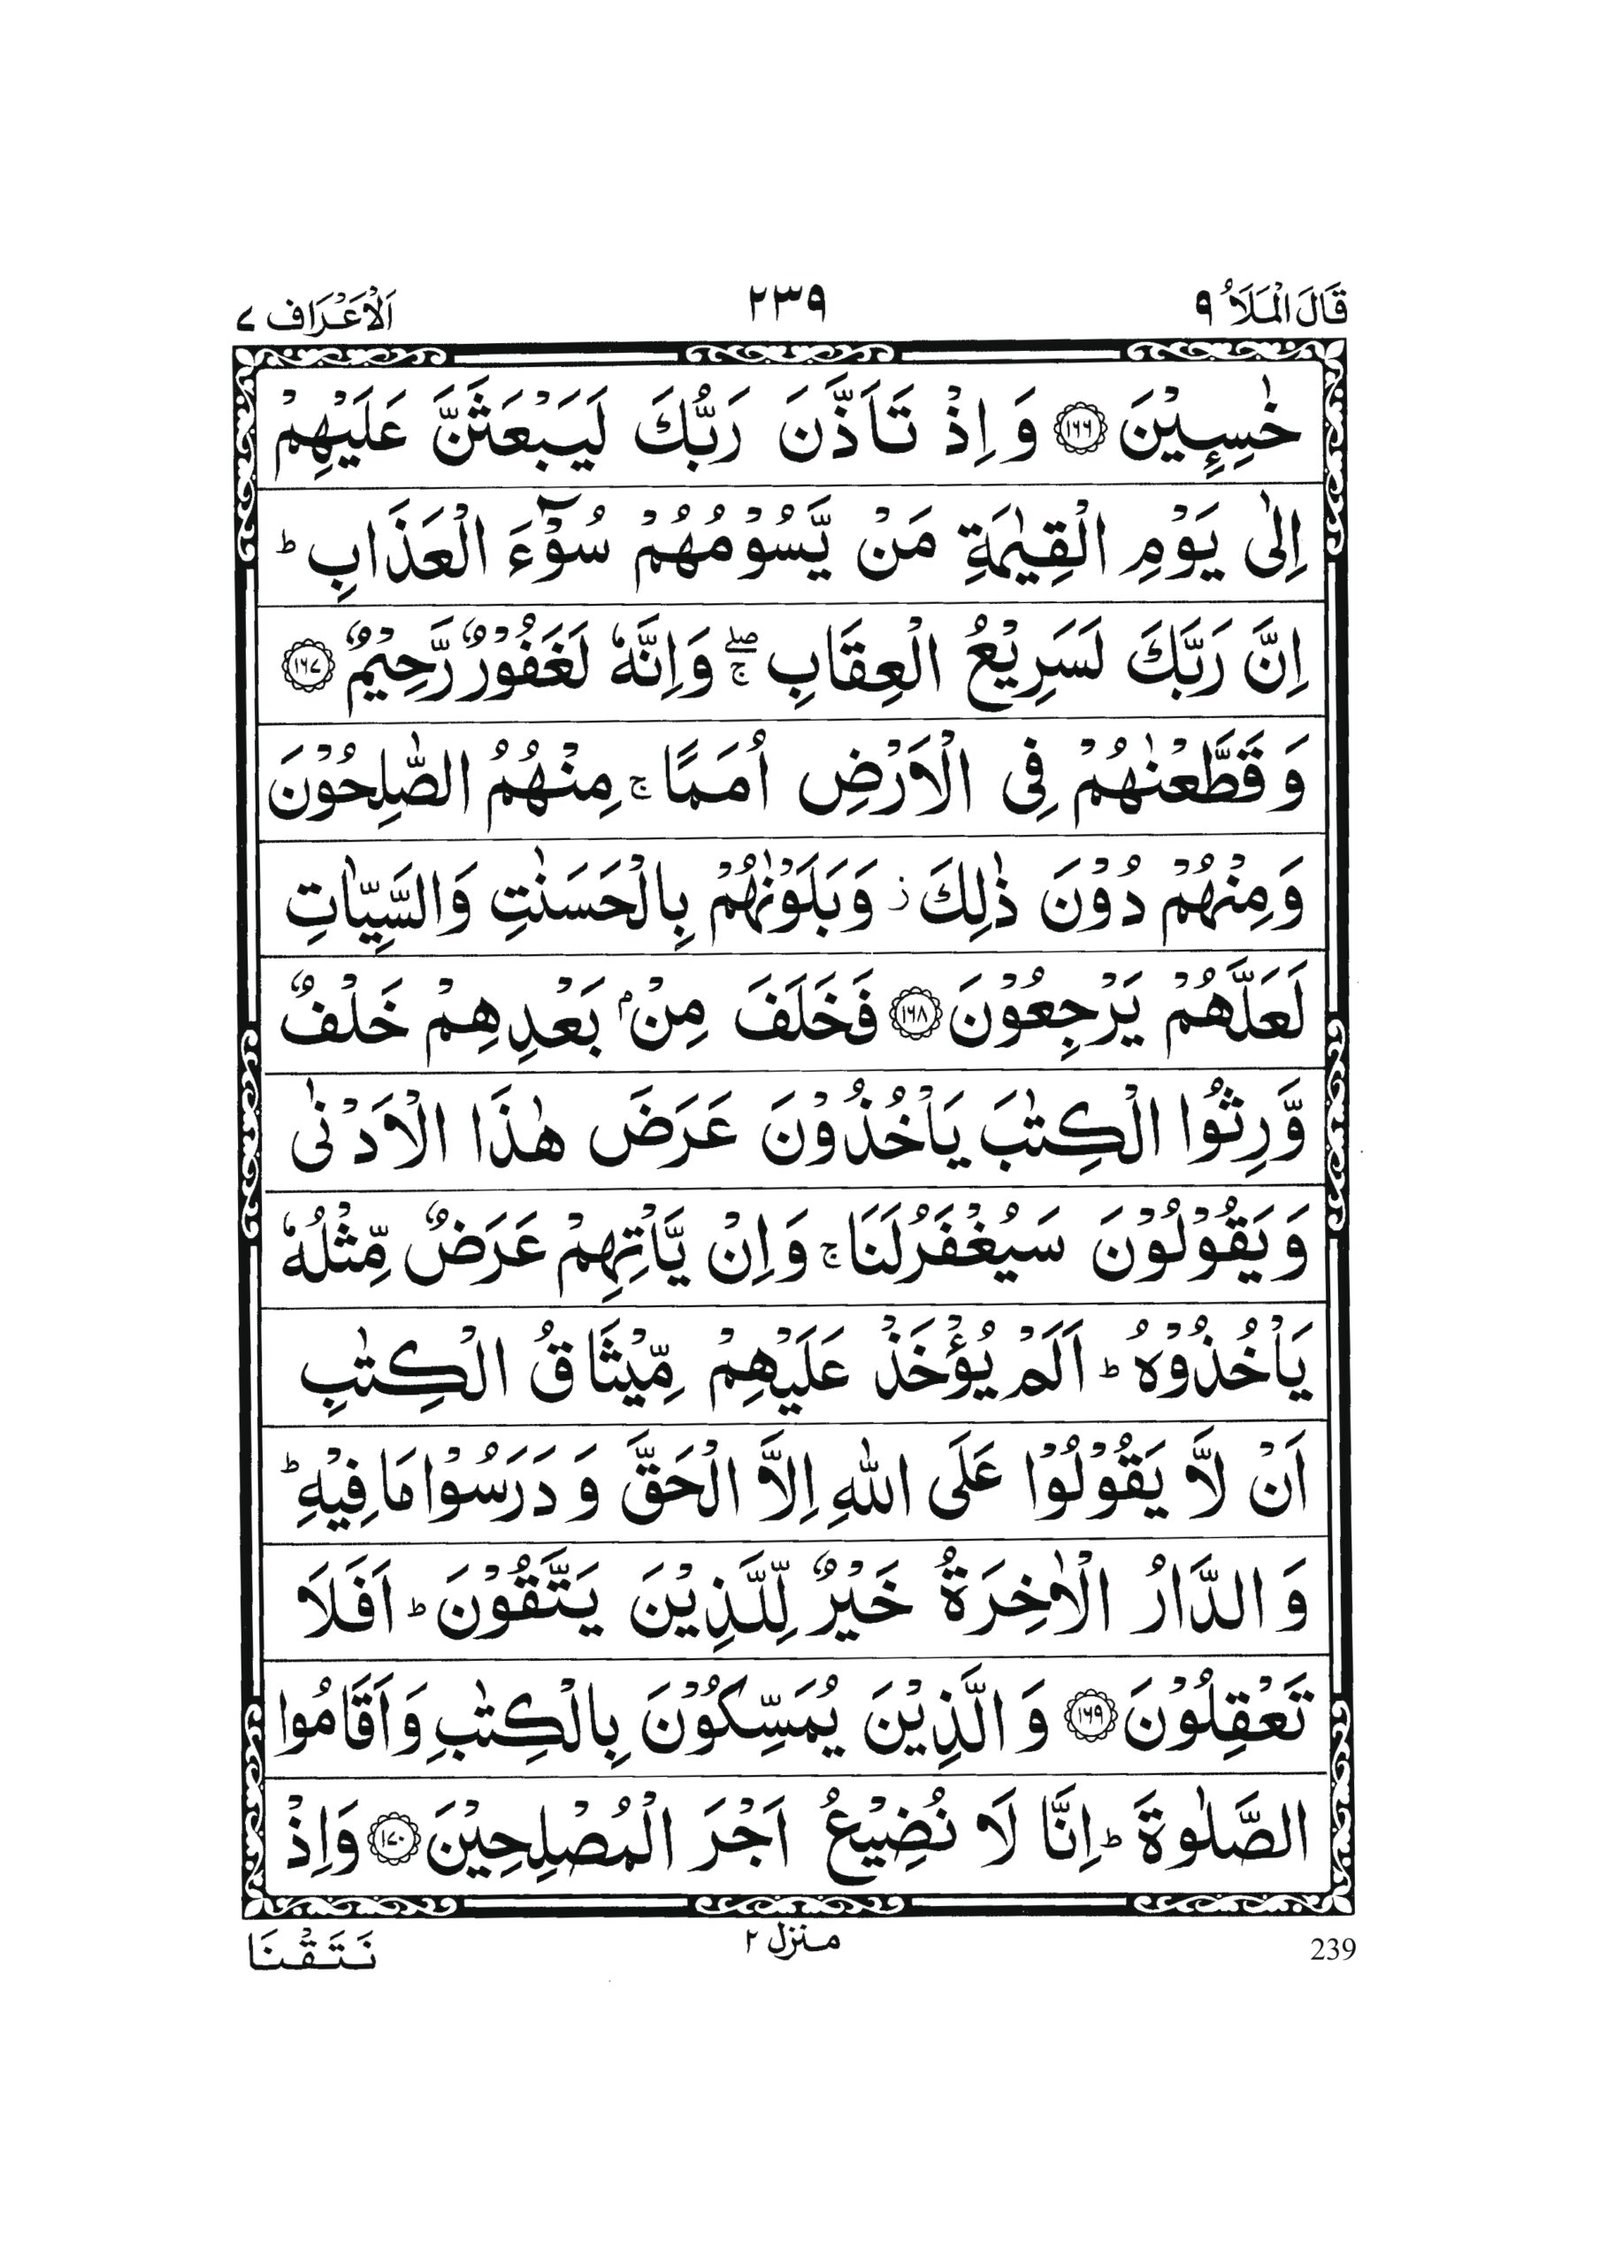 قَالَ الْمَلَاُ ٩ ٢٣٩ اَلْاَعْرَاف ٧
خٰسِـِٕيْنَ ١٦٦ وَ اِذْ تَاَذَّنَ رَبُّكَ لَيَبْعَثَنَّ عَلَيْهِمْ
اِلٰى يَوْمِ الْقِيٰمَةِ مَنْ يَّسُوْمُهُمْ سُوْٓءَ الْعَذَابِ ؕ
اِنَّ رَبَّكَ لَسَرِيْعُ الْعِقَابِ ۖۚ وَاِنَّهٗ لَغَفُوْرٌ رَّحِيْمٌ ١٦٧
وَ قَطَّعْنٰهُمْ فِى الْاَرْضِ اُمَمًا ۚ مِنْهُمُ الصّٰلِحُوْنَ
وَمِنْهُمْ دُوْنَ ذٰلِكَ ؗ وَبَلَوْنٰهُمْ بِالْحَسَنٰتِ وَالسَّيِّاٰتِ
لَعَلَّهُمْ يَرْجِعُوْنَ ١٦٨ فَخَلَفَ مِنْۢ بَعْدِهِمْ خَلْفٌ
وَّرِثُوا الْكِتٰبَ يَاْخُذُوْنَ عَرَضَ هٰذَا الْاَدْنٰى
وَيَقُوْلُوْنَ سَيُغْفَرُلَنَا ۚ وَاِنْ يَّاْتِهِمْ عَرَضٌ مِّثْلُهٗ
يَاْخُذُوْهُ ؕ اَلَمْ يُؤْخَذْ عَلَيْهِمْ مِّيْثَاقُ الْكِتٰبِ
اَنْ لَّا يَقُوْلُوْا عَلَى اللّٰهِ اِلَّا الْحَقَّ وَ دَرَسُوْا مَا فِيْهِ ؕ
وَ الدَّارُ الْاٰخِرَةُ خَيْرٌ لِّلَّذِيْنَ يَتَّقُوْنَ ؕ اَفَلَا
تَعْقِلُوْنَ ١٦٩ وَ الَّذِيْنَ يُمَسِّكُوْنَ بِالْكِتٰبِ وَاَقَامُوا
الصَّلٰوةَ ؕ اِنَّا لَا نُضِيْعُ اَجْرَ الْمُصْلِحِيْنَ ١٧٠ وَاِذْ
239 منزل ٢ نَتَقْنَا